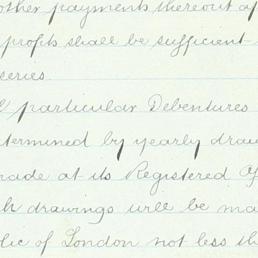 other payments thereout af
profits shall be sufficient
series
particular Debentures
termined by yearly draw
made at its Registered Of
h drawings will be ma
lic of London not less th